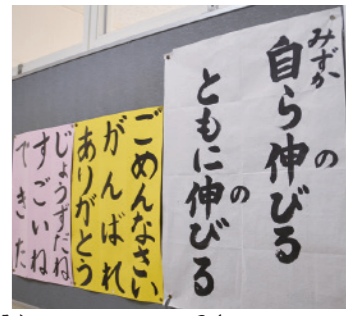 みずか
自ら伸びる
の
ともに伸びる
の
ごめんなさい
がんばれ
ありがとう
じょうずだね
すごいね
できた